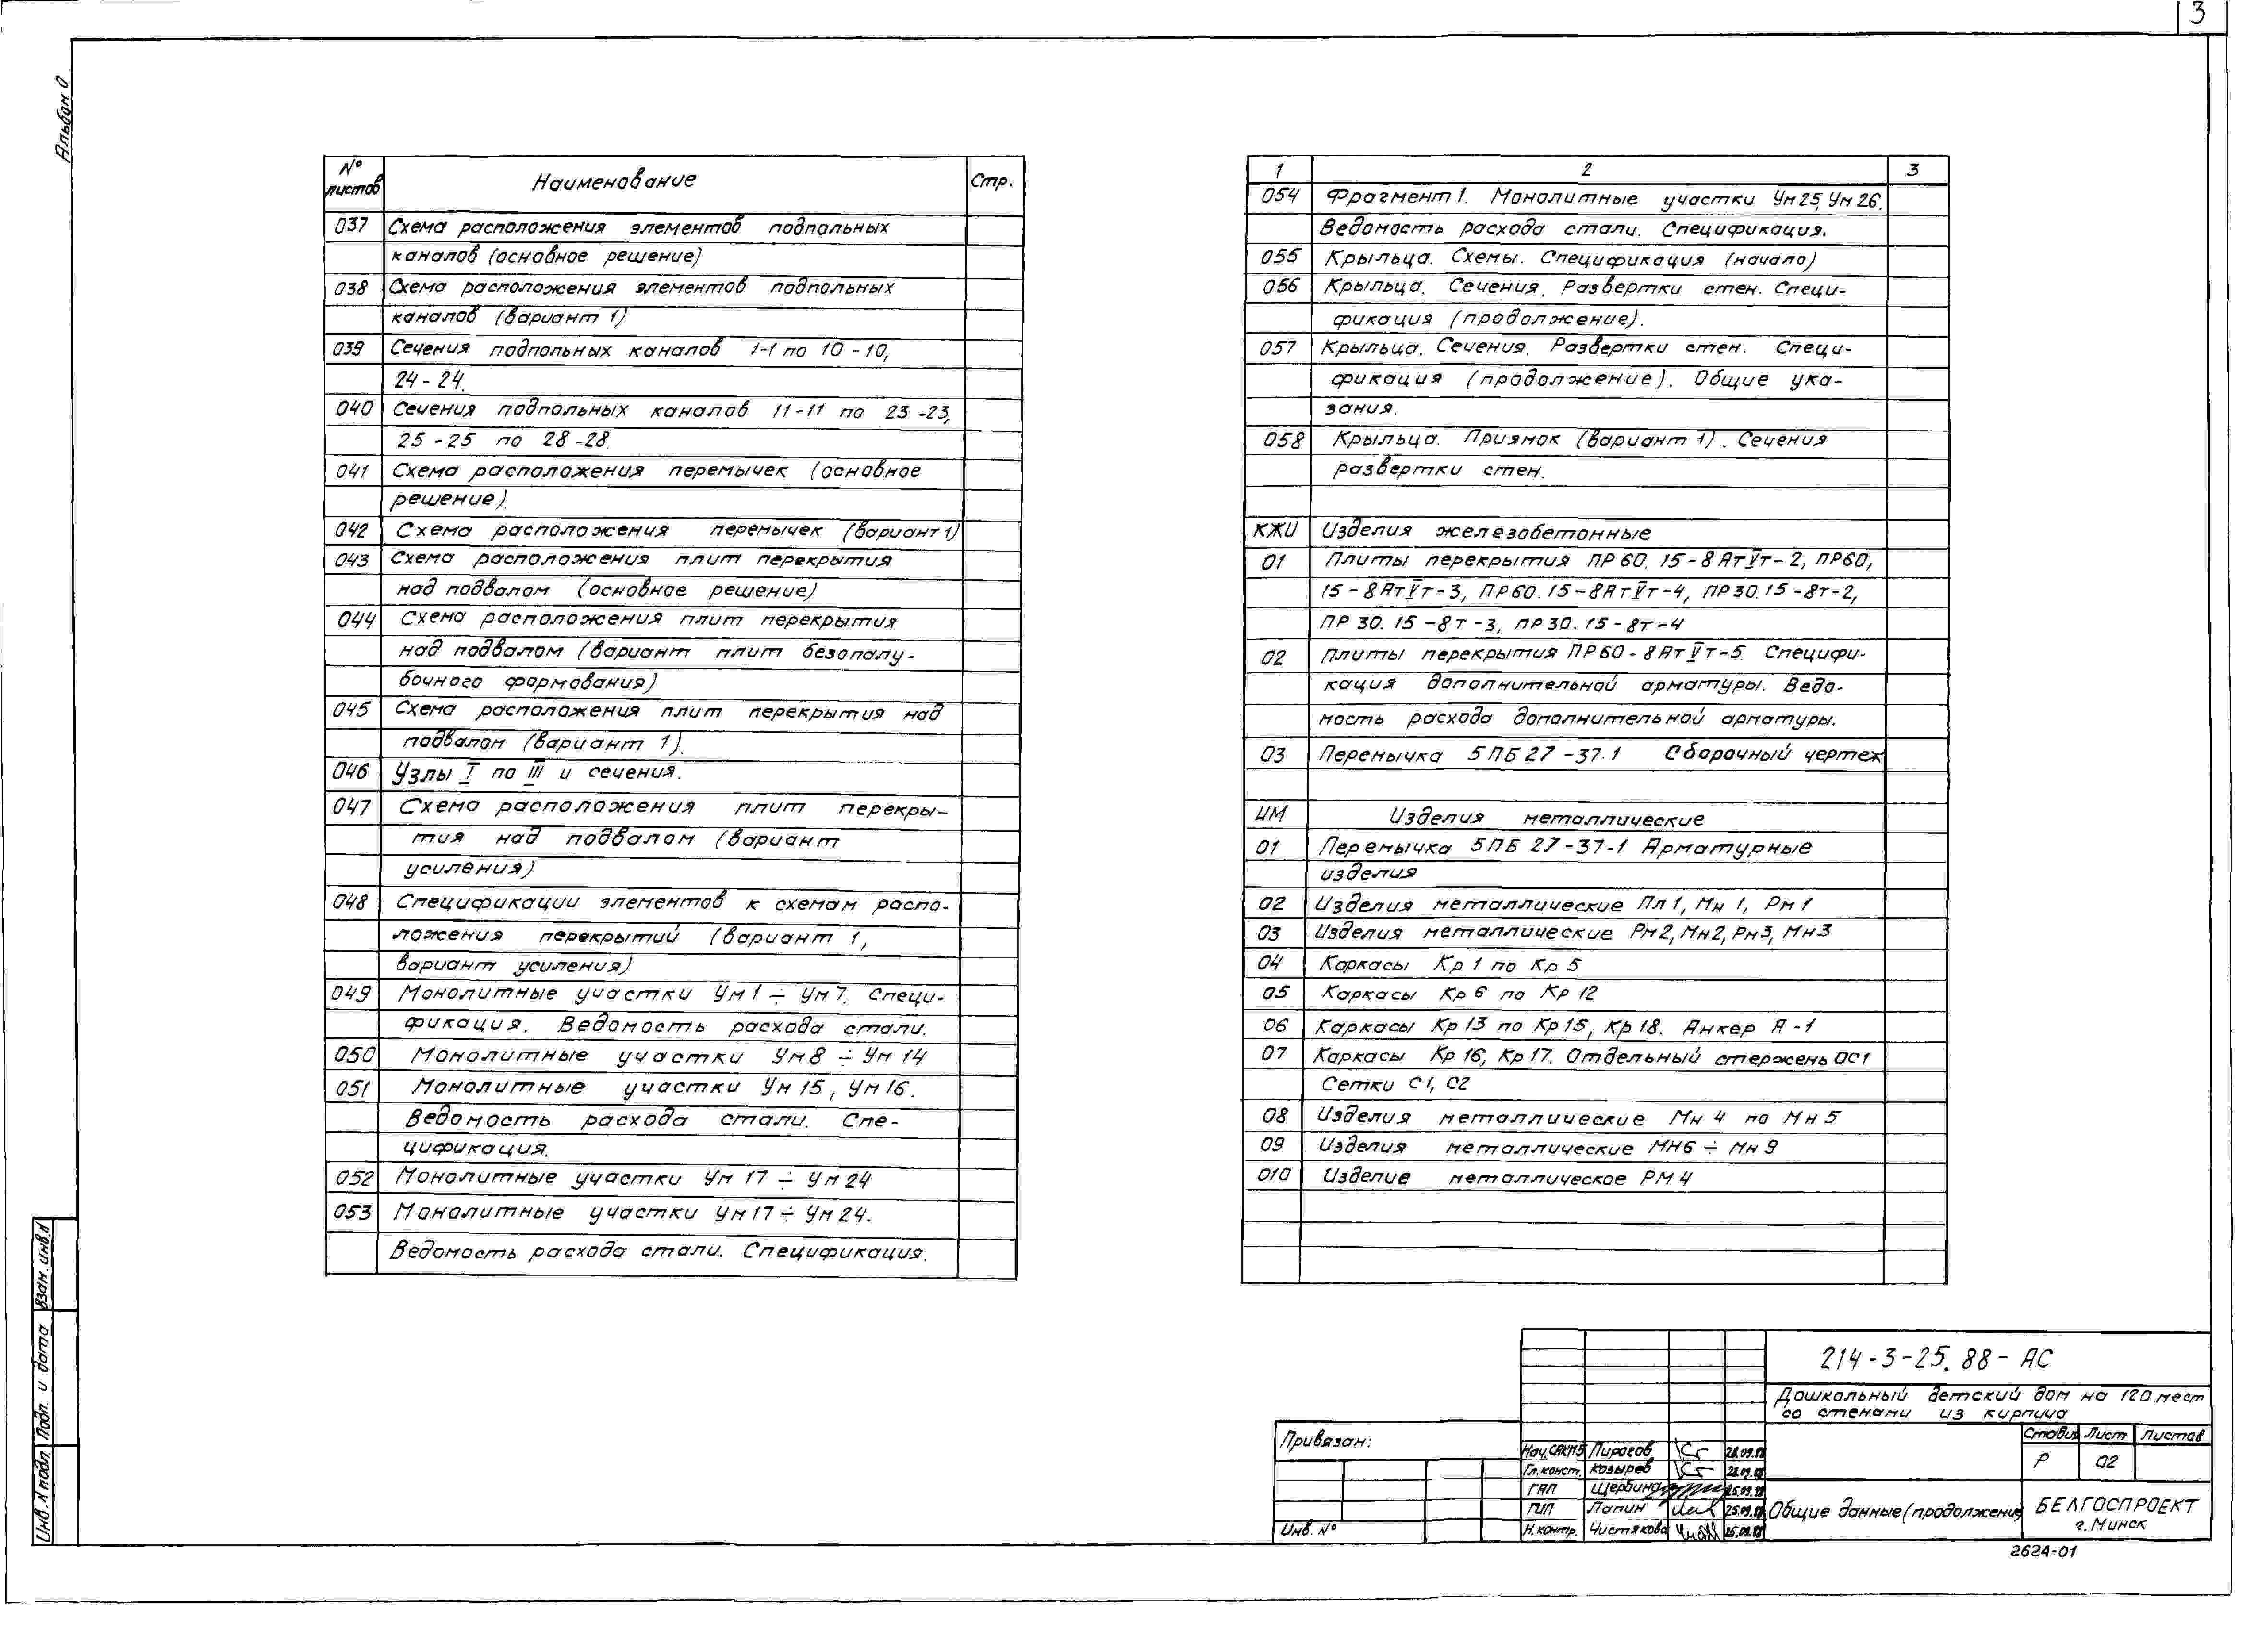 3
Альбом 0
№ листов
Наименование
Стр.
037 Схема расположения элементов подпольных
каналов (основное решение)
038 Схема расположения элементов подпольных
каналов (вариант 1)
039 Сечения подпольных каналов 1-1 по 10-10,
24-24.
040 Сечения подпольных каналов 11-11 по 23-23,
25-25 по 28-28.
041 Схема расположения перемычек (основное
решение).
042 Схема расположения перемычек (вариант 1)
043 Схема расположения плит перекрытия
над подвалом (основное решение)
044 Схема расположения плит перекрытия
над подвалом (вариант плит безопалу-
бочного формования)
045 Схема расположения плит перекрытия над
подвалом (вариант 1).
046 Узлы I по III и сечения.
047 Схема расположения плит перекры-
тия над подвалом (вариант
усиления)
048 Спецификации элементов к схемам распо-
ложения перекрытий (вариант 1,
вариант усиления)
049 Монолитные участки Ум1 ÷ Ум7. Специ-
фикация. Ведомость расхода стали.
050 Монолитные участки Ум8 ÷ Ум14
051 Монолитные участки Ум15, Ум16.
Ведомость расхода стали. Спе-
цификация.
052 Монолитные участки Ум17 ÷ Ум24
053 Монолитные участки Ум17 ÷ Ум24.
Ведомость расхода стали. Спецификация.
1 2 3
054 Фрагмент 1. Монолитные участки Ум25, Ум26.
Ведомость расхода стали. Спецификация.
055 Крыльца. Схемы. Спецификация (начало)
056 Крыльца. Сечения. Развертки стен. Специ-
фикация (продолжение).
057 Крыльца. Сечения. Развертки стен. Специ-
фикация (продолжение). Общие ука-
зания.
058 Крыльца. Приямок (вариант 1). Сечения
развертки стен.
КЖИ Изделия железобетонные
01 Плиты перекрытия ПР60.15-8АтVт-2, ПР60,
15-8АтVт-3, ПР60.15-8АтVт-4, ПР30.15-8т-2,
ПР30.15-8т-3, ПР30.15-8т-4
02 Плиты перекрытия ПР60-8АтVт-5. Специфи-
кация дополнительной арматуры. Ведо-
мость расхода дополнительной арматуры.
03 Перемычка 5ПБ27-37.1 Сборочный чертеж
ИМ Изделия металлические
01 Перемычка 5ПБ27-37-1 Арматурные
изделия
02 Изделия металлические Пл1, Мн1, Рм1
03 Изделия металлические Рм2, Мн2, Рм3, Мн3
04 Каркасы Кр1 по Кр5
05 Каркасы Кр6 по Кр12
06 Каркасы Кр13 по Кр15, Кр18. Анкер А-1
07 Каркасы Кр16, Кр17. Отдельный стержень ОС1
Сетки С1, С2
08 Изделия металлические Мн4 по Мн5
09 Изделия металлические МН6 ÷ Мн9
010 Изделие металлическое РМ4
Взам.инв.№
Подп. и дата
Инв.№подл.
Привязан:
Инв. №
214-3-25.88-АС
Дошкольный детский дом на 120 мест
со стенами из кирпича
Стадия Лист Листов
Р 02
Нач.САКМ5 Пирогов 28.09.88
Гл.конст. Козырев 28.09.88
ГАП Щербина 25.09.88
ГИП Лапин 25.09.88
Н.контр. Чистякова
Общие данные (продолжение)
БЕЛГОСПРОЕКТ
г.Минск
2624-01